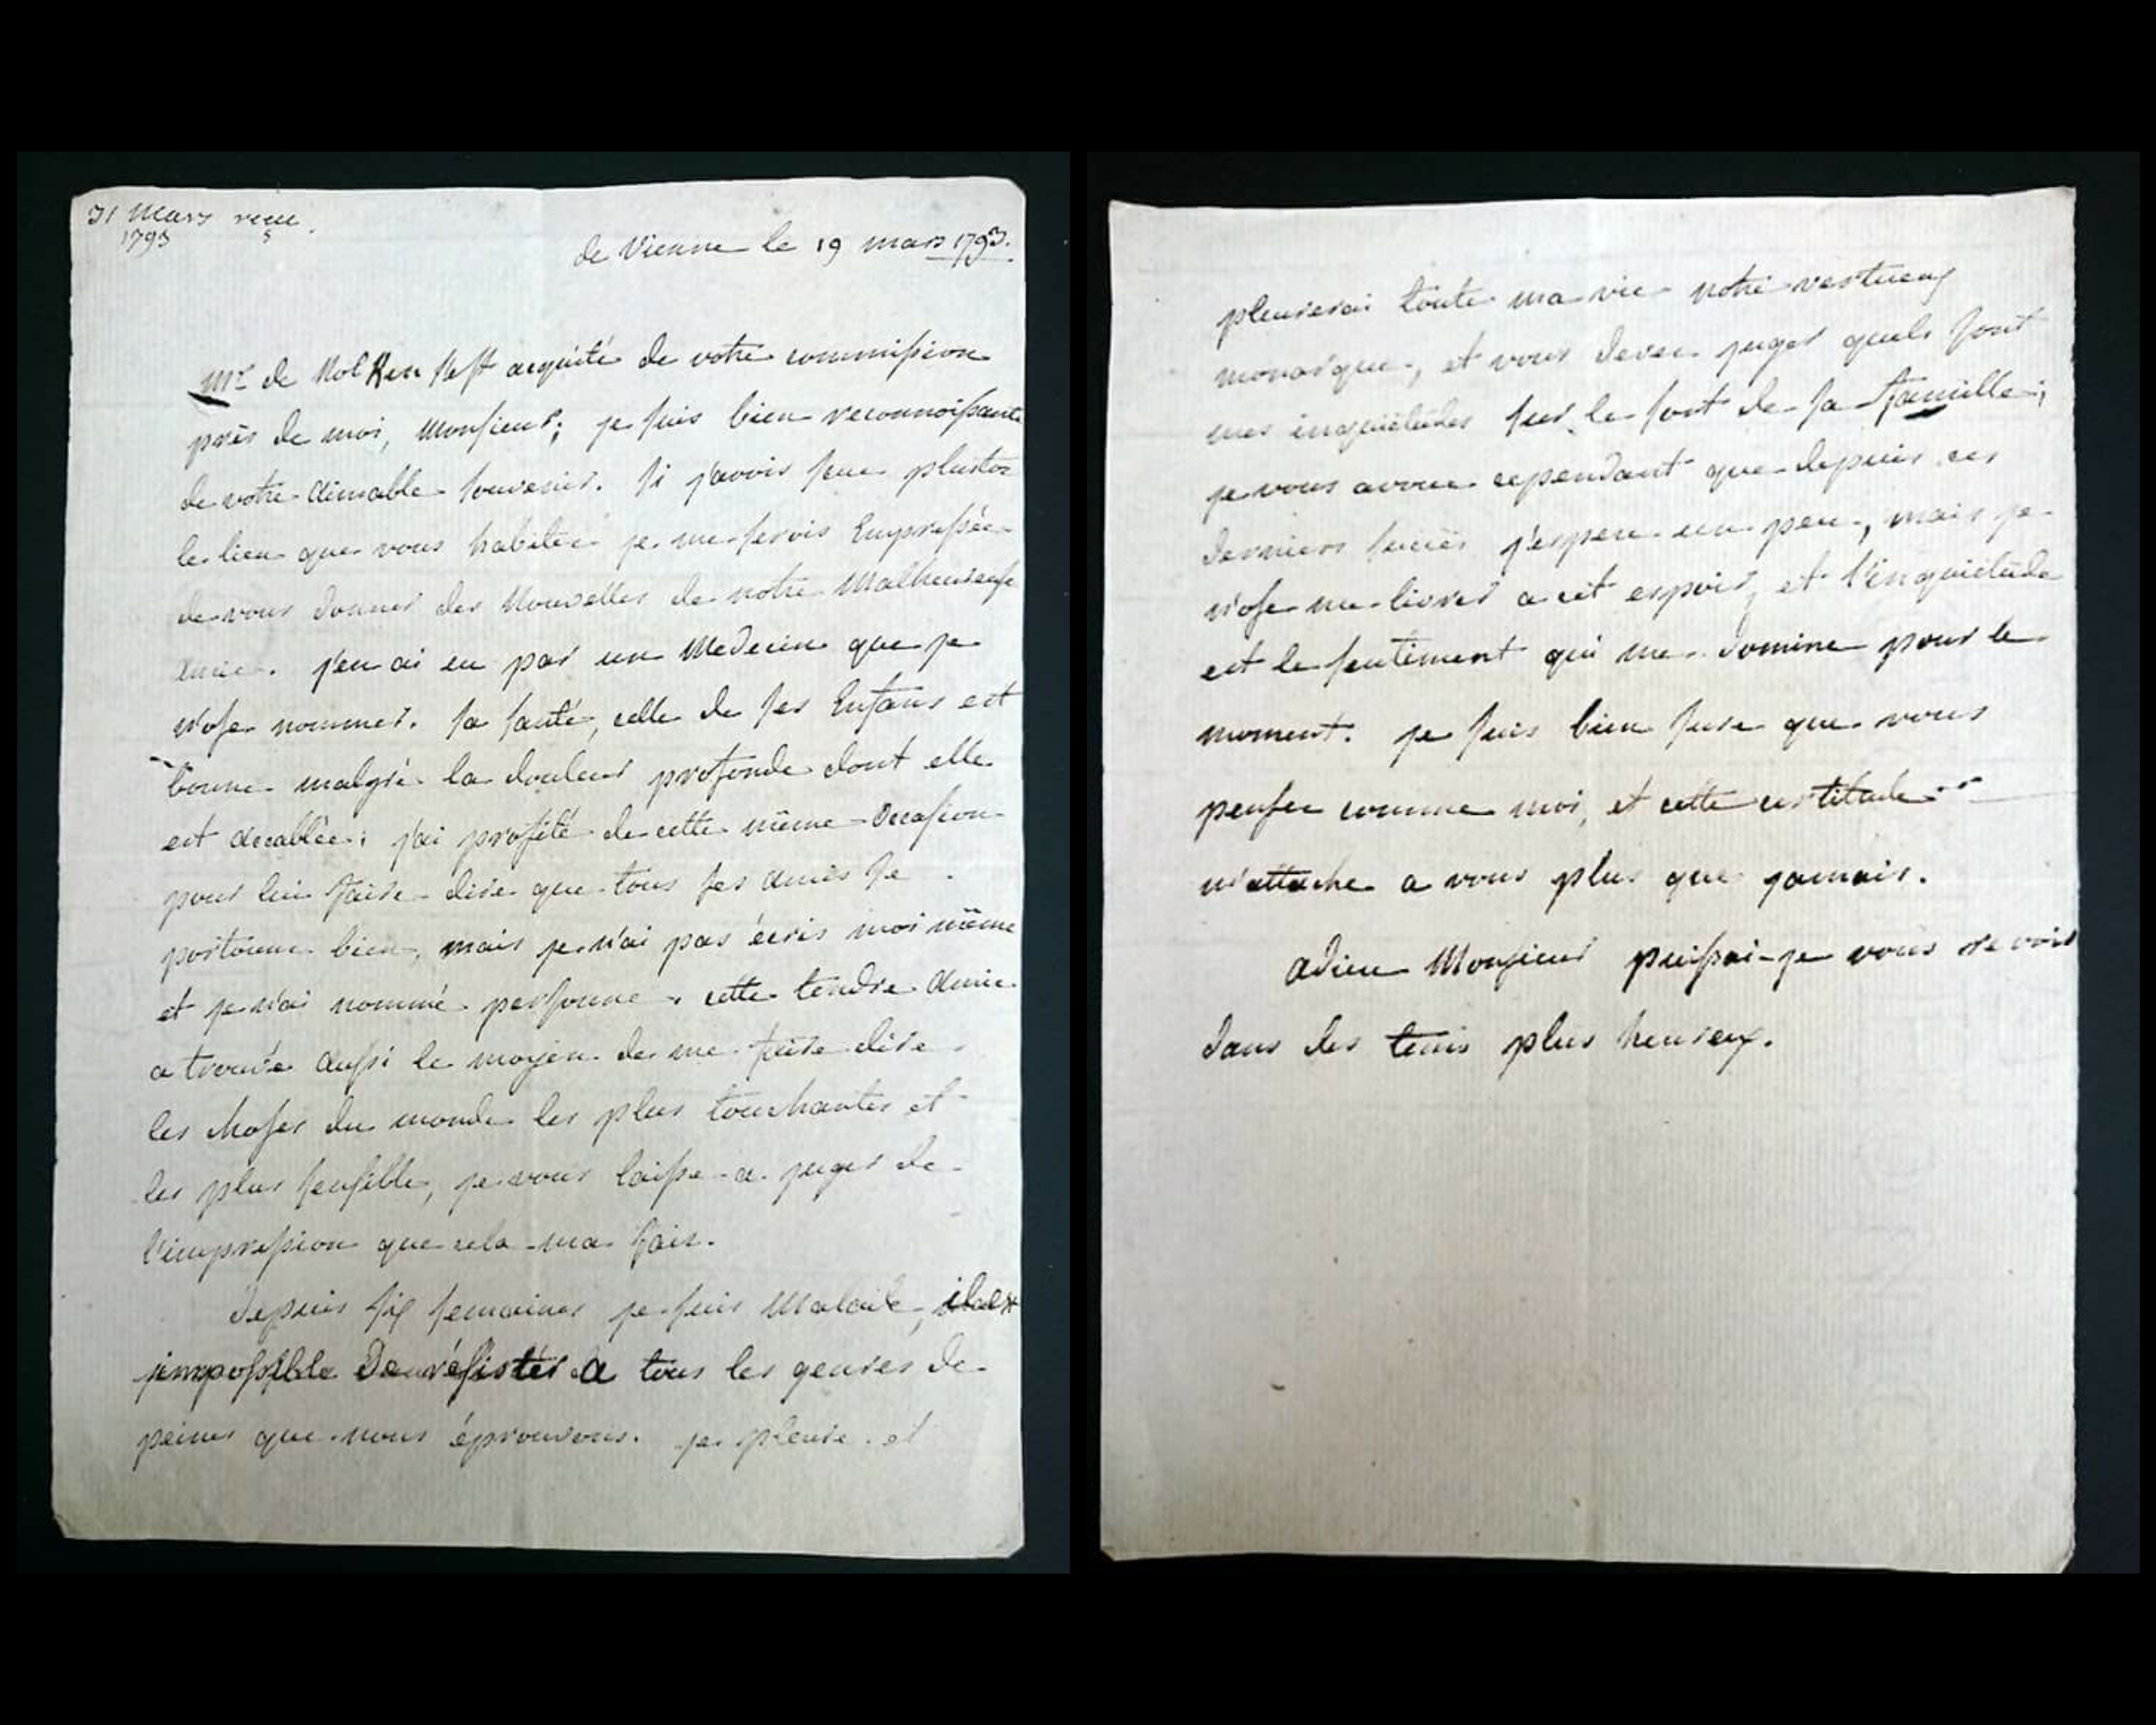 31 mars reçue.
1793
de Vienne le 19 mars 1793.
Mr de Nolken s'est acquité de votre commission
près de moi, Monsieur; je suis bien reconnoissante
de votre aimable souvenir. Si j'avois seue plustot
le lieu que vous habitez je me serois Empressée
de vous donner des Nouvelles de notre Malheureuse
amie. j'en ai eu par un Medecin que je
n'ose nommer. sa santé, celle de ses Enfans est
bonne malgré la douleur profonde dont elle
est accablée; j'ai profité de cette même occasion
pour lui faire dire que tous ses amis se
portoient bien, mais je n'ai pas écris moi même
et je n'ai nommé personne. cette tendre amie
a trouvée aussi le moyen de me faire dire
les choses du monde les plus touchantes et
les plus sensible, je vous laisse a juger de
l'impression que cela ma fais.
Depuis six semaines je suis Malade, il est
impossible de résister a tous les genres de
peines que nous éprouvons. je pleure et
pleurerai toute ma vie notre vertueux
monarque, et vous devez juger quels sont
mes inquietudes sur le sort de sa famille;
je vous avoue cependant que depuis ces
derniers succès j'espere un peu, mais je
n'ose me livrer a cet espoir, et l'inquietude
est le sentiment qui me domine pour le
moment. je suis bien sure que vous
pensez comme moi, et cette certitude
m'attache a vous plus que jamais.
adieu Monsieur puissai-je vous revoir
dans des tems plus heureux.